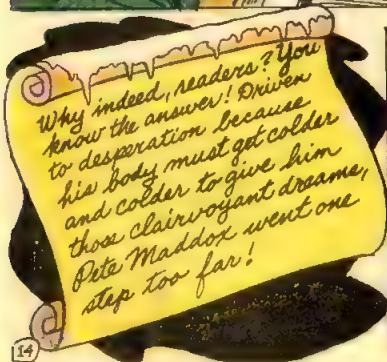 Why indeed, readers? You
know the answer! Driven
to desperation because
his body must get colder
and colder to give him
those clairvoyant dreams,
Pete Maddox went one
step too far!
14